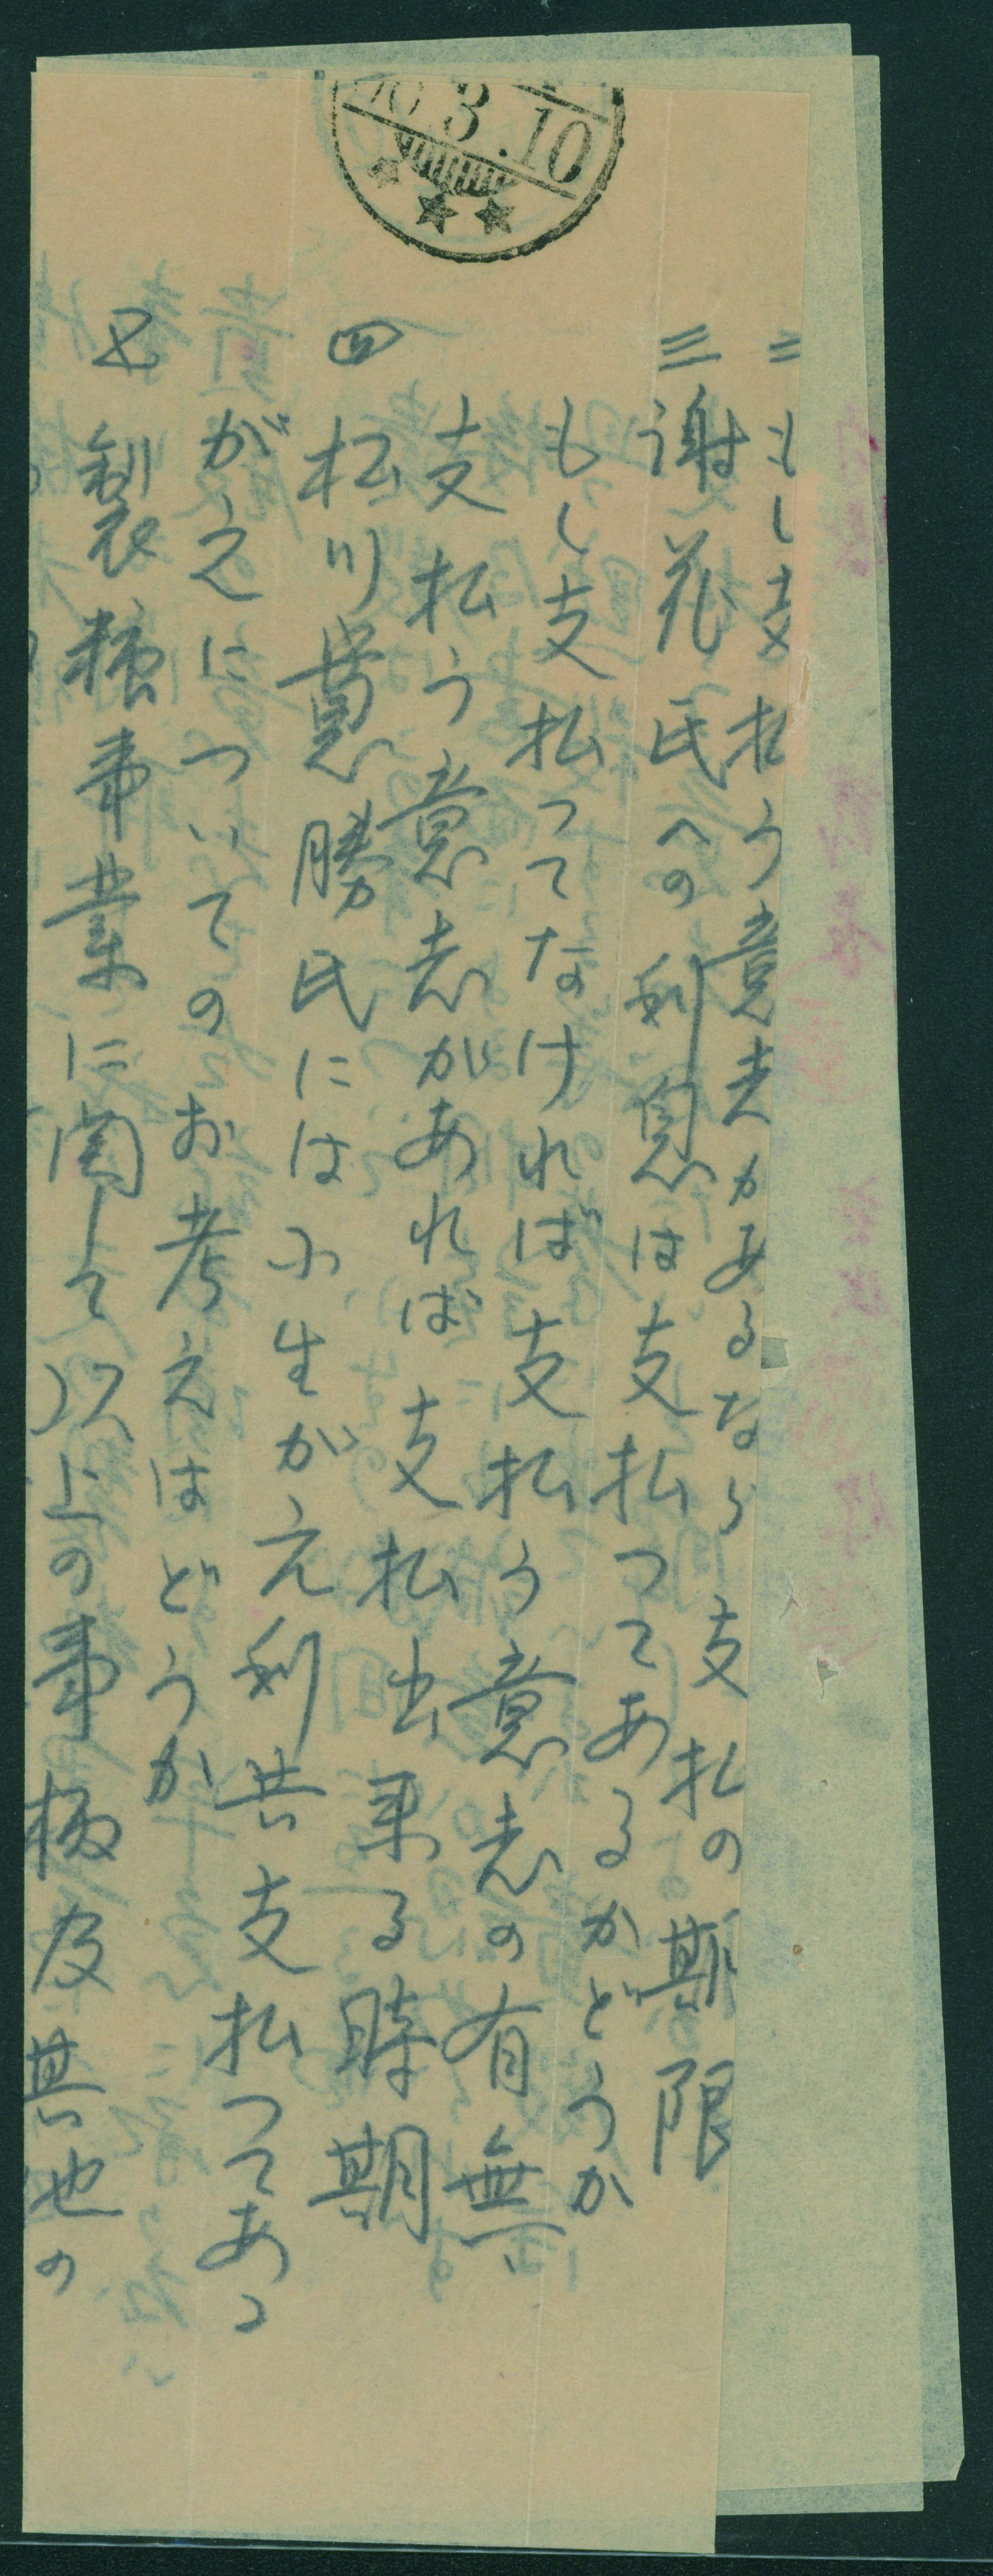 二 もし支払う意志があるなら支払の期限
三 謝花氏への利息は支払つてあるかどうか
もし支払つてなければ支払う意志の有無、
支払う意志があれば支払出来る時期
四 松川寛勝氏には小生が元利共支払つてあつ
がえについてのお考えはどうか
五 製糖事業に関して以上の事柄及其他の
3.10